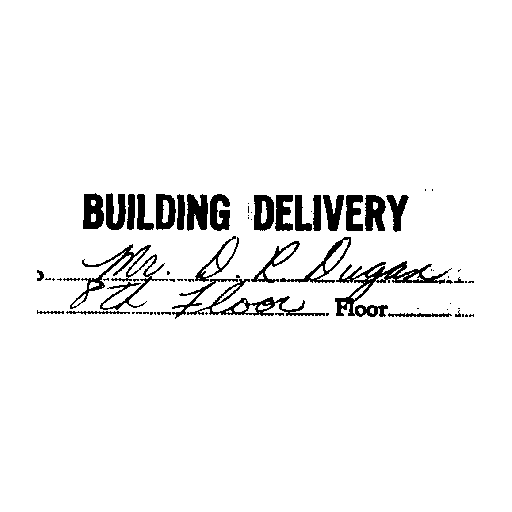 BUILDING DELIVERY
Mr. D. R. Dugan
8th Floor Floor